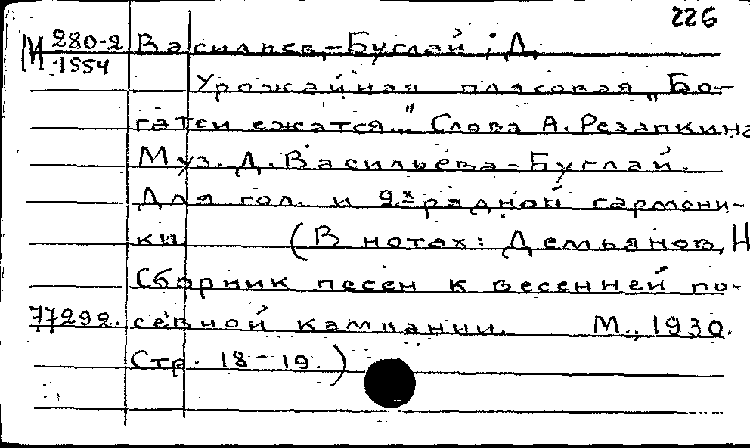 226
М 280-2 Васильев-Буглай, Д.
1554
Урожайная плясовая „Бо-
гатеи ежатся..." Слова А. Резапкина
Муз. Д. Васильева-Буглай.
Для гол. и 2хрядной гармони-
ки. (В нотах: Демьянов, Н
Сборник песен к весенней по-
77292. севной кампании. М., 1930.
Стр. 18-19.)